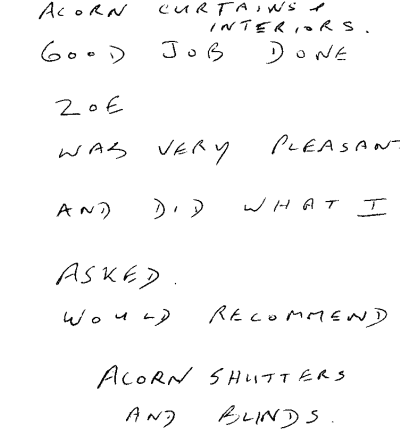 ACORN CURTAINS &
INTERIORS.
GOOD JOB DONE
ZOE
WAS VERY PLEASANT
AND DID WHAT I
ASKED.
WOULD RECOMMEND
ACORN SHUTTERS
AND BLINDS.